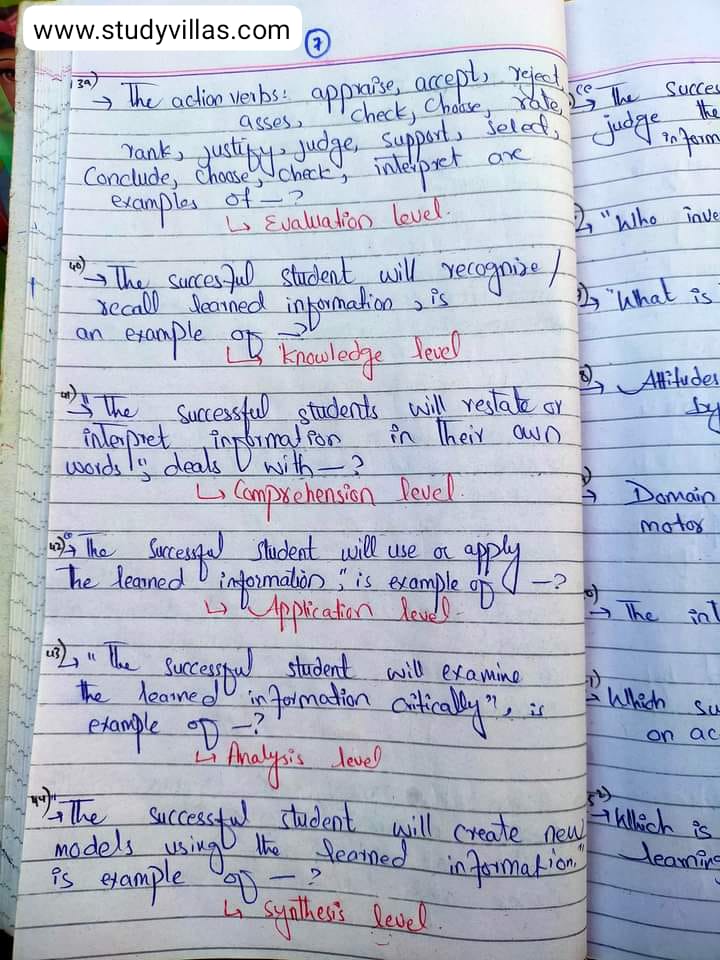 www.studyvillas.com
7
39) → The action verbs: appraise, accept, reject,
asses, check, choose, rate,
rank, justify, judge, support, select,
Conclude, choose, check, interpret are
examples of — ?
↳ Evaluation level.
40) → The succesful student will recognize /
recall learned information, is
an example of — ?
↳ Knowledge level
41) "→ The successful students will restate or
interpret information in their own
words", deals with — ?
↳ Comprehension level.
42) "→ The successful student will use or apply
the learned information," is example of — ?
↳ Application level.
43) ↳ "The successful student will examine
the learned information critically", is
example of — ?
↳ Analysis level
44) "→ The successful student will create new
models using the learned information."
is example of — ?
↳ synthesis level.
→ The succes
judge the
inform
"Who inve
"What is
Attitudes
by
Domain
motor
→ The in
→ Which su
on ac
52) → Which is
learning